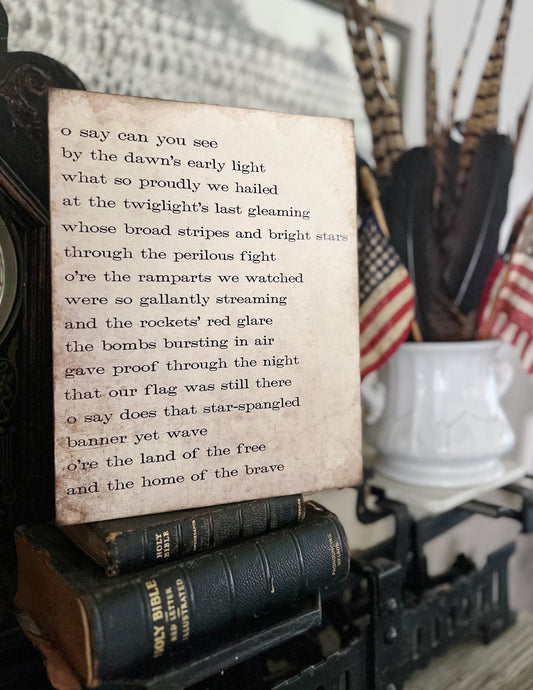 o say can you see
by the dawn's early light
what so proudly we hailed
at the twiglight's last gleaming
whose broad stripes and bright stars
through the perilous fight
o're the ramparts we watched
were so gallantly streaming
and the rockets' red glare
the bombs bursting in air
gave proof through the night
that our flag was still there
o say does that star-spangled
banner yet wave
o're the land of the free
and the home of the brave
HOLY
BIBLE
HOLY BIBLE
RED LETTER
ILLUSTRATED